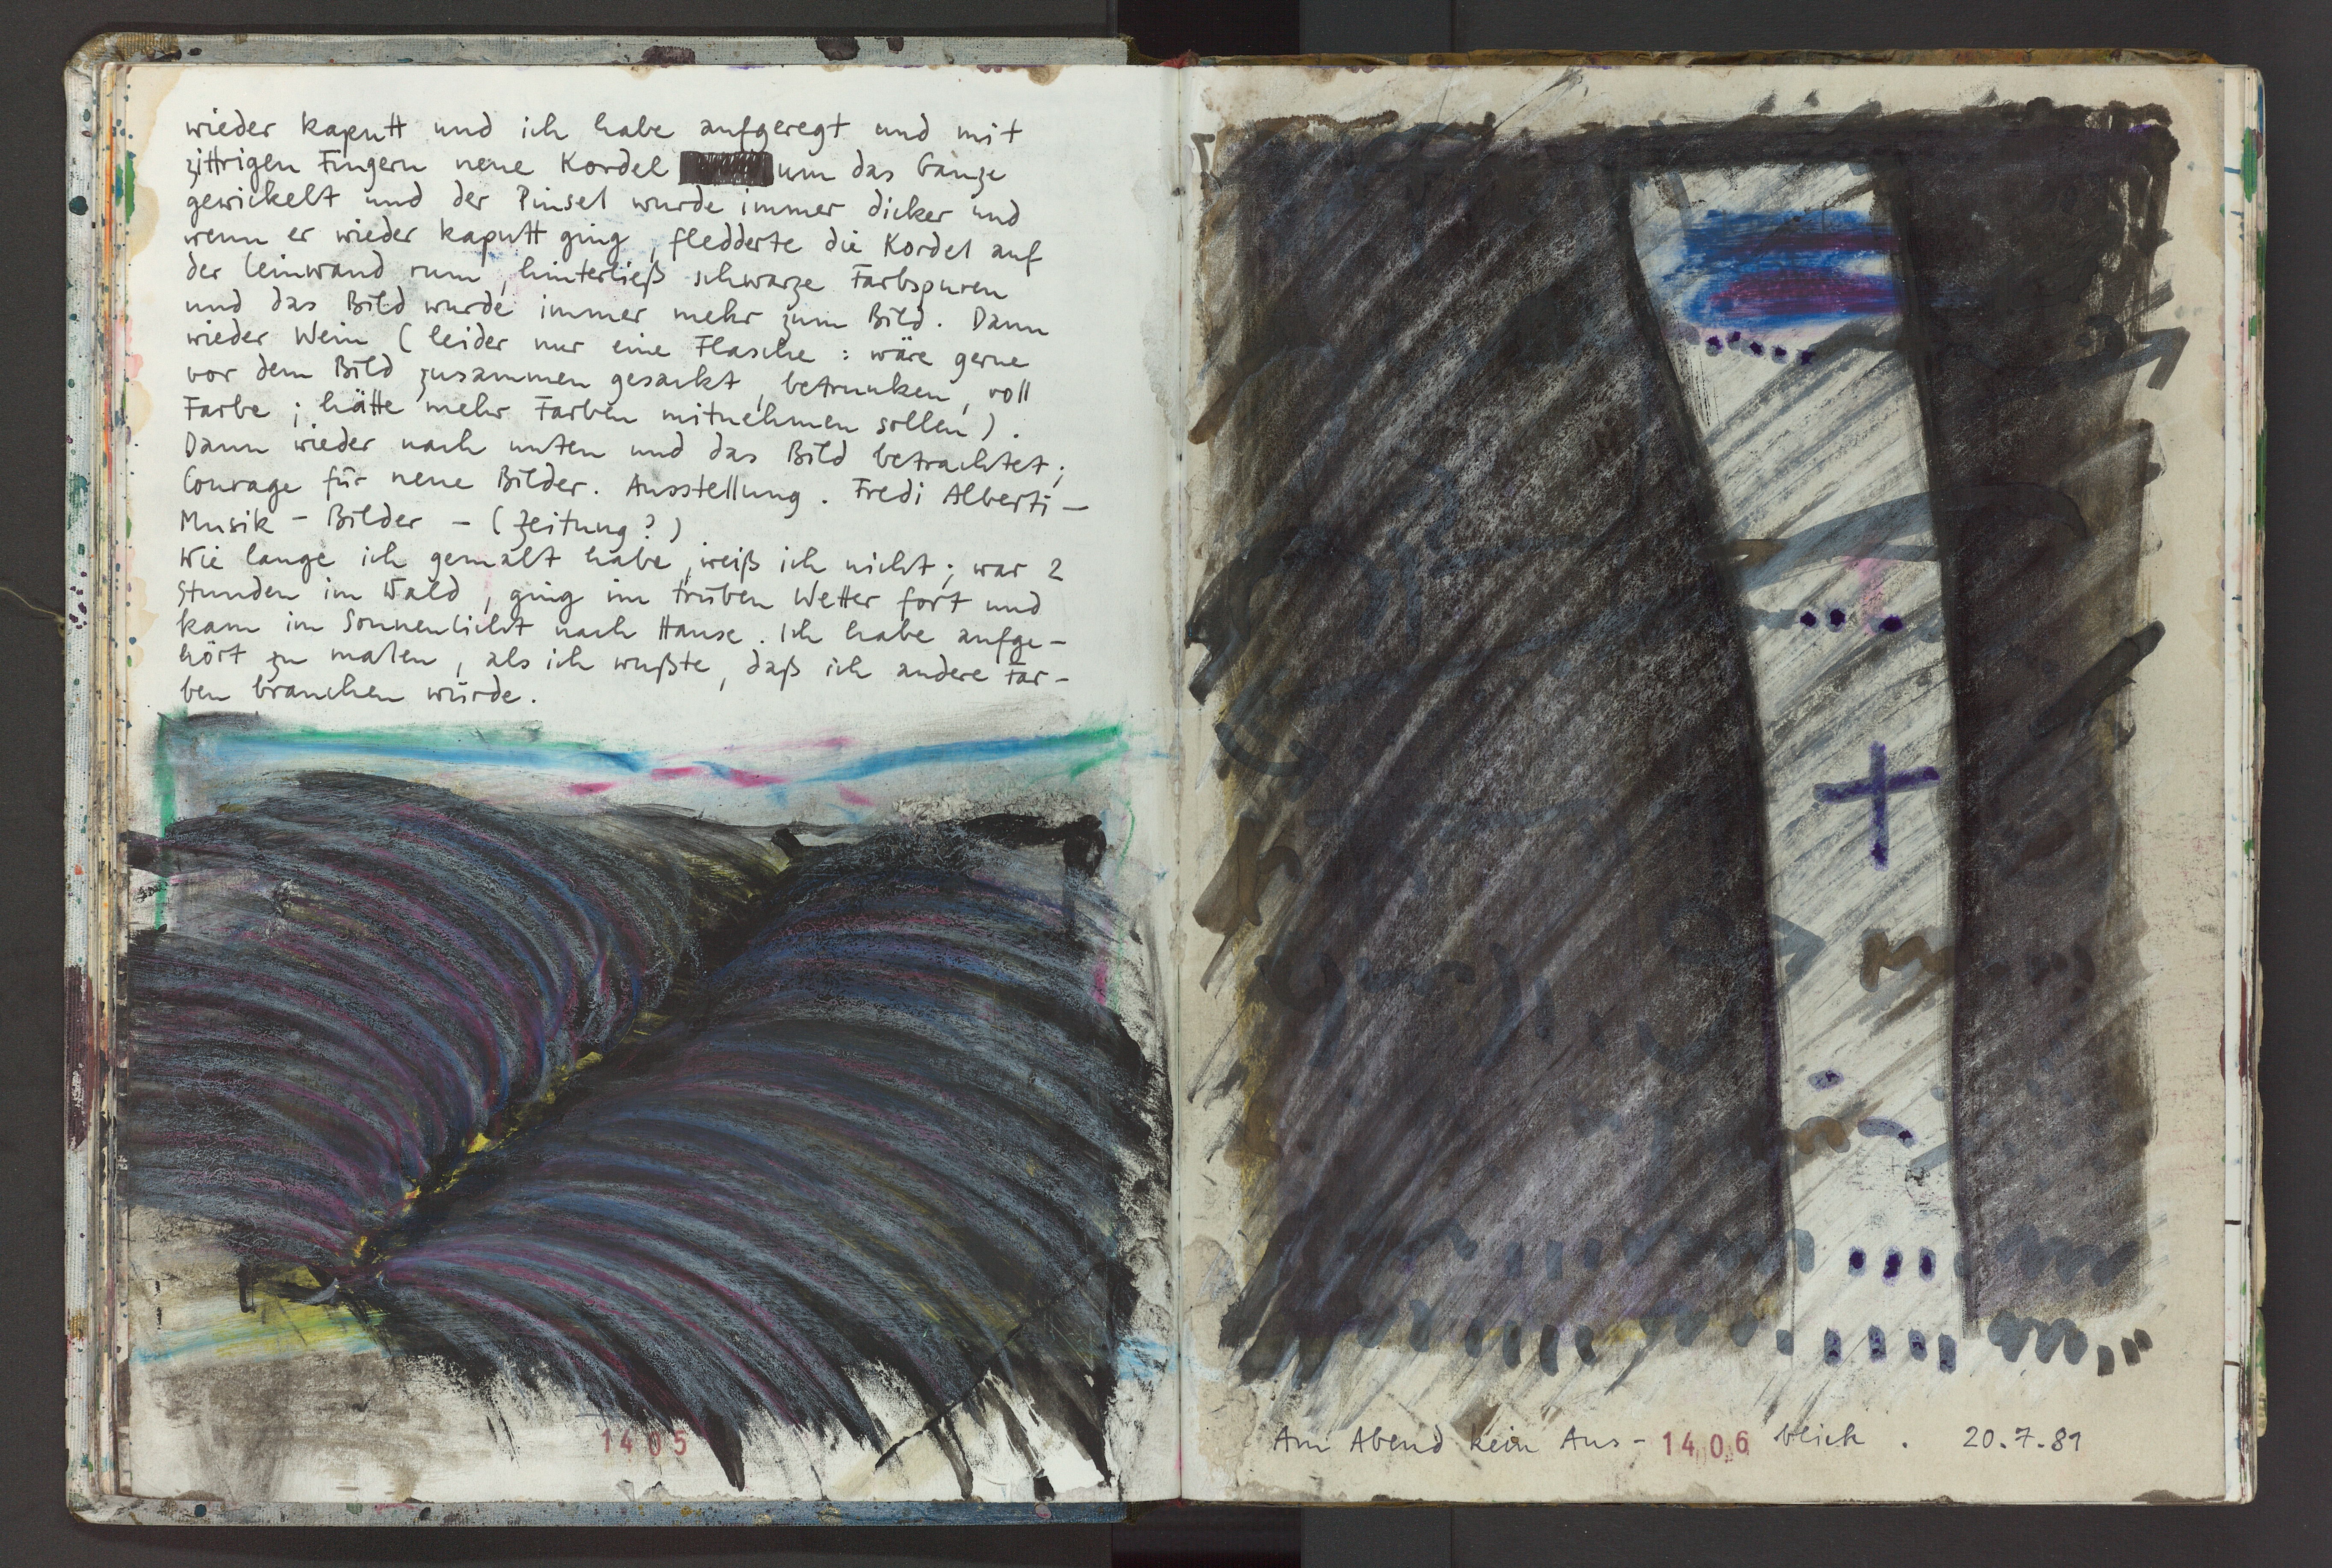 wieder kaputt und ich habe aufgeregt und mit
zittrigen Fingern neue Kordel um das Ganze
gewickelt und der Pinsel wurde immer dicker und
wenn er wieder kaputt ging, fledderte die Kordel auf
der Leinwand rum, hinterließ schwarze Farbspuren
und das Bild wurde immer mehr zum Bild. Dann
wieder Wein (leider nur eine Flasche: wäre gerne
vor dem Bild zusammen gesackt, betrunken, voll
Farbe; hätte mehr Farben mitnehmen sollen).
Dann wieder nach unten und das Bild betrachtet;
Courage für neue Bilder. Ausstellung. Fredi Alberti –
Musik – Bilder – (Zeitung?)
Wie lange ich gemalt habe, weiß ich nicht; war 2
Stunden im Wald, ging im trüben Wetter fort und
kam im Sonnenlicht nach Hause. Ich habe aufge-
hört zu malen, als ich wußte, daß ich andere Far-
ben brauchen würde.
1405
Am Abend kein Aus- 1406 blick. 20.7.81